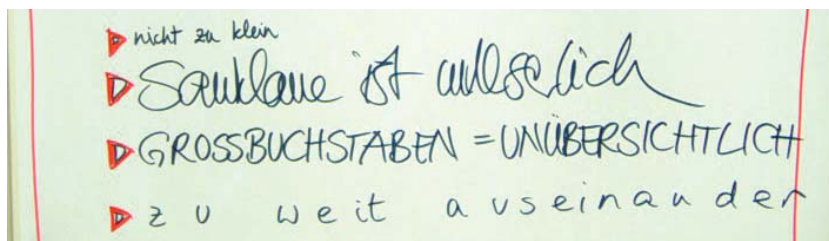 nicht zu klein
Sauklaue ist unleserlich
GROSSBUCHSTABEN = UNÜBERSICHTLICH
zu weit auseinander